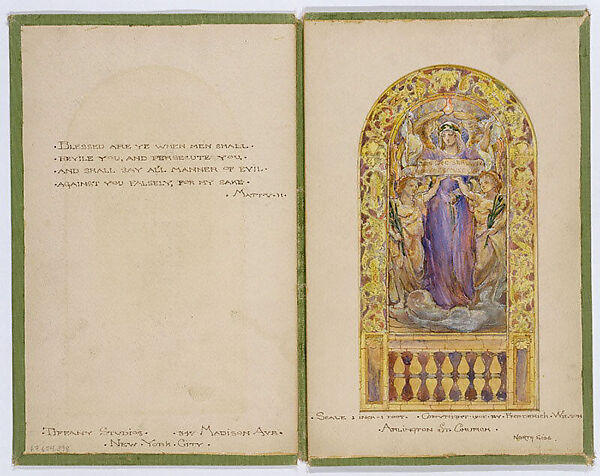 · Blessed are ye when men shall ·
· revile you, and persecute you, ·
· and shall say all manner of evil ·
· against you falsely, for my sake ·
· Matt. V. 11.
Tiffany Studios · 347 Madison Ave.
· New York City ·
67.654.398
· Scale 1 inch = 1 foot · · Copyright 1905 by Frederick Wilson
· Arlington St. Church ·
North Side